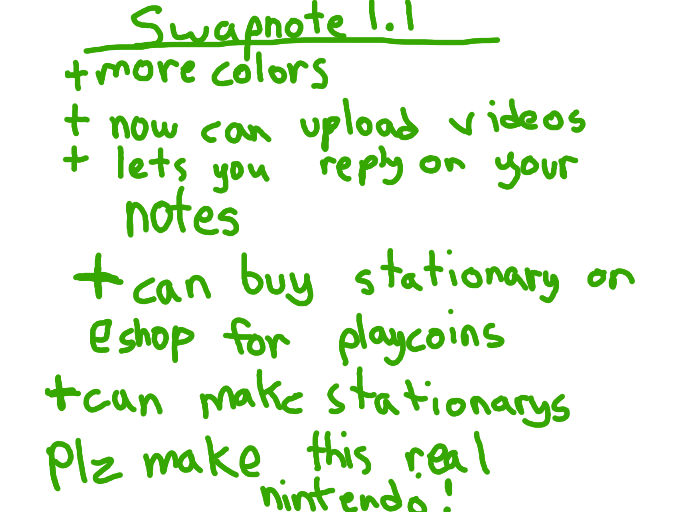 Swapnote 1.1
+more colors
+ now can upload videos
+ lets you reply on your
notes
+can buy stationary on
eshop for playcoins
+can make stationarys
plz make this real
nintendo!